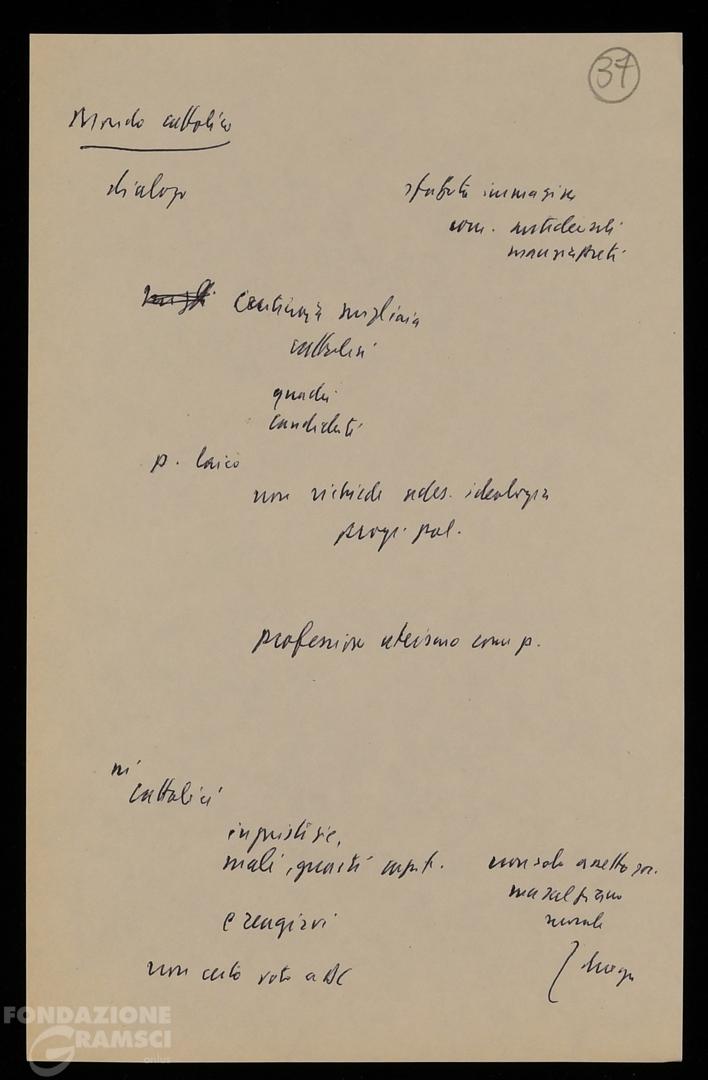 37
Mondo cattolico
dialogo
sfatata immagine
com. anticlericali
mangiapreti
Centinaia migliaia
cattolici
quadri
candidati
p. laico
non richiede ades. ideologia
progr. pol.
professione ateismo come p.
cattolici
ingiustizie,
mali, guasti capit.
non solo assetto soc.
ma sul piano
morale
e reagirvi
non certo voto a DC
FONDAZIONE
GRAMSCI
onlus